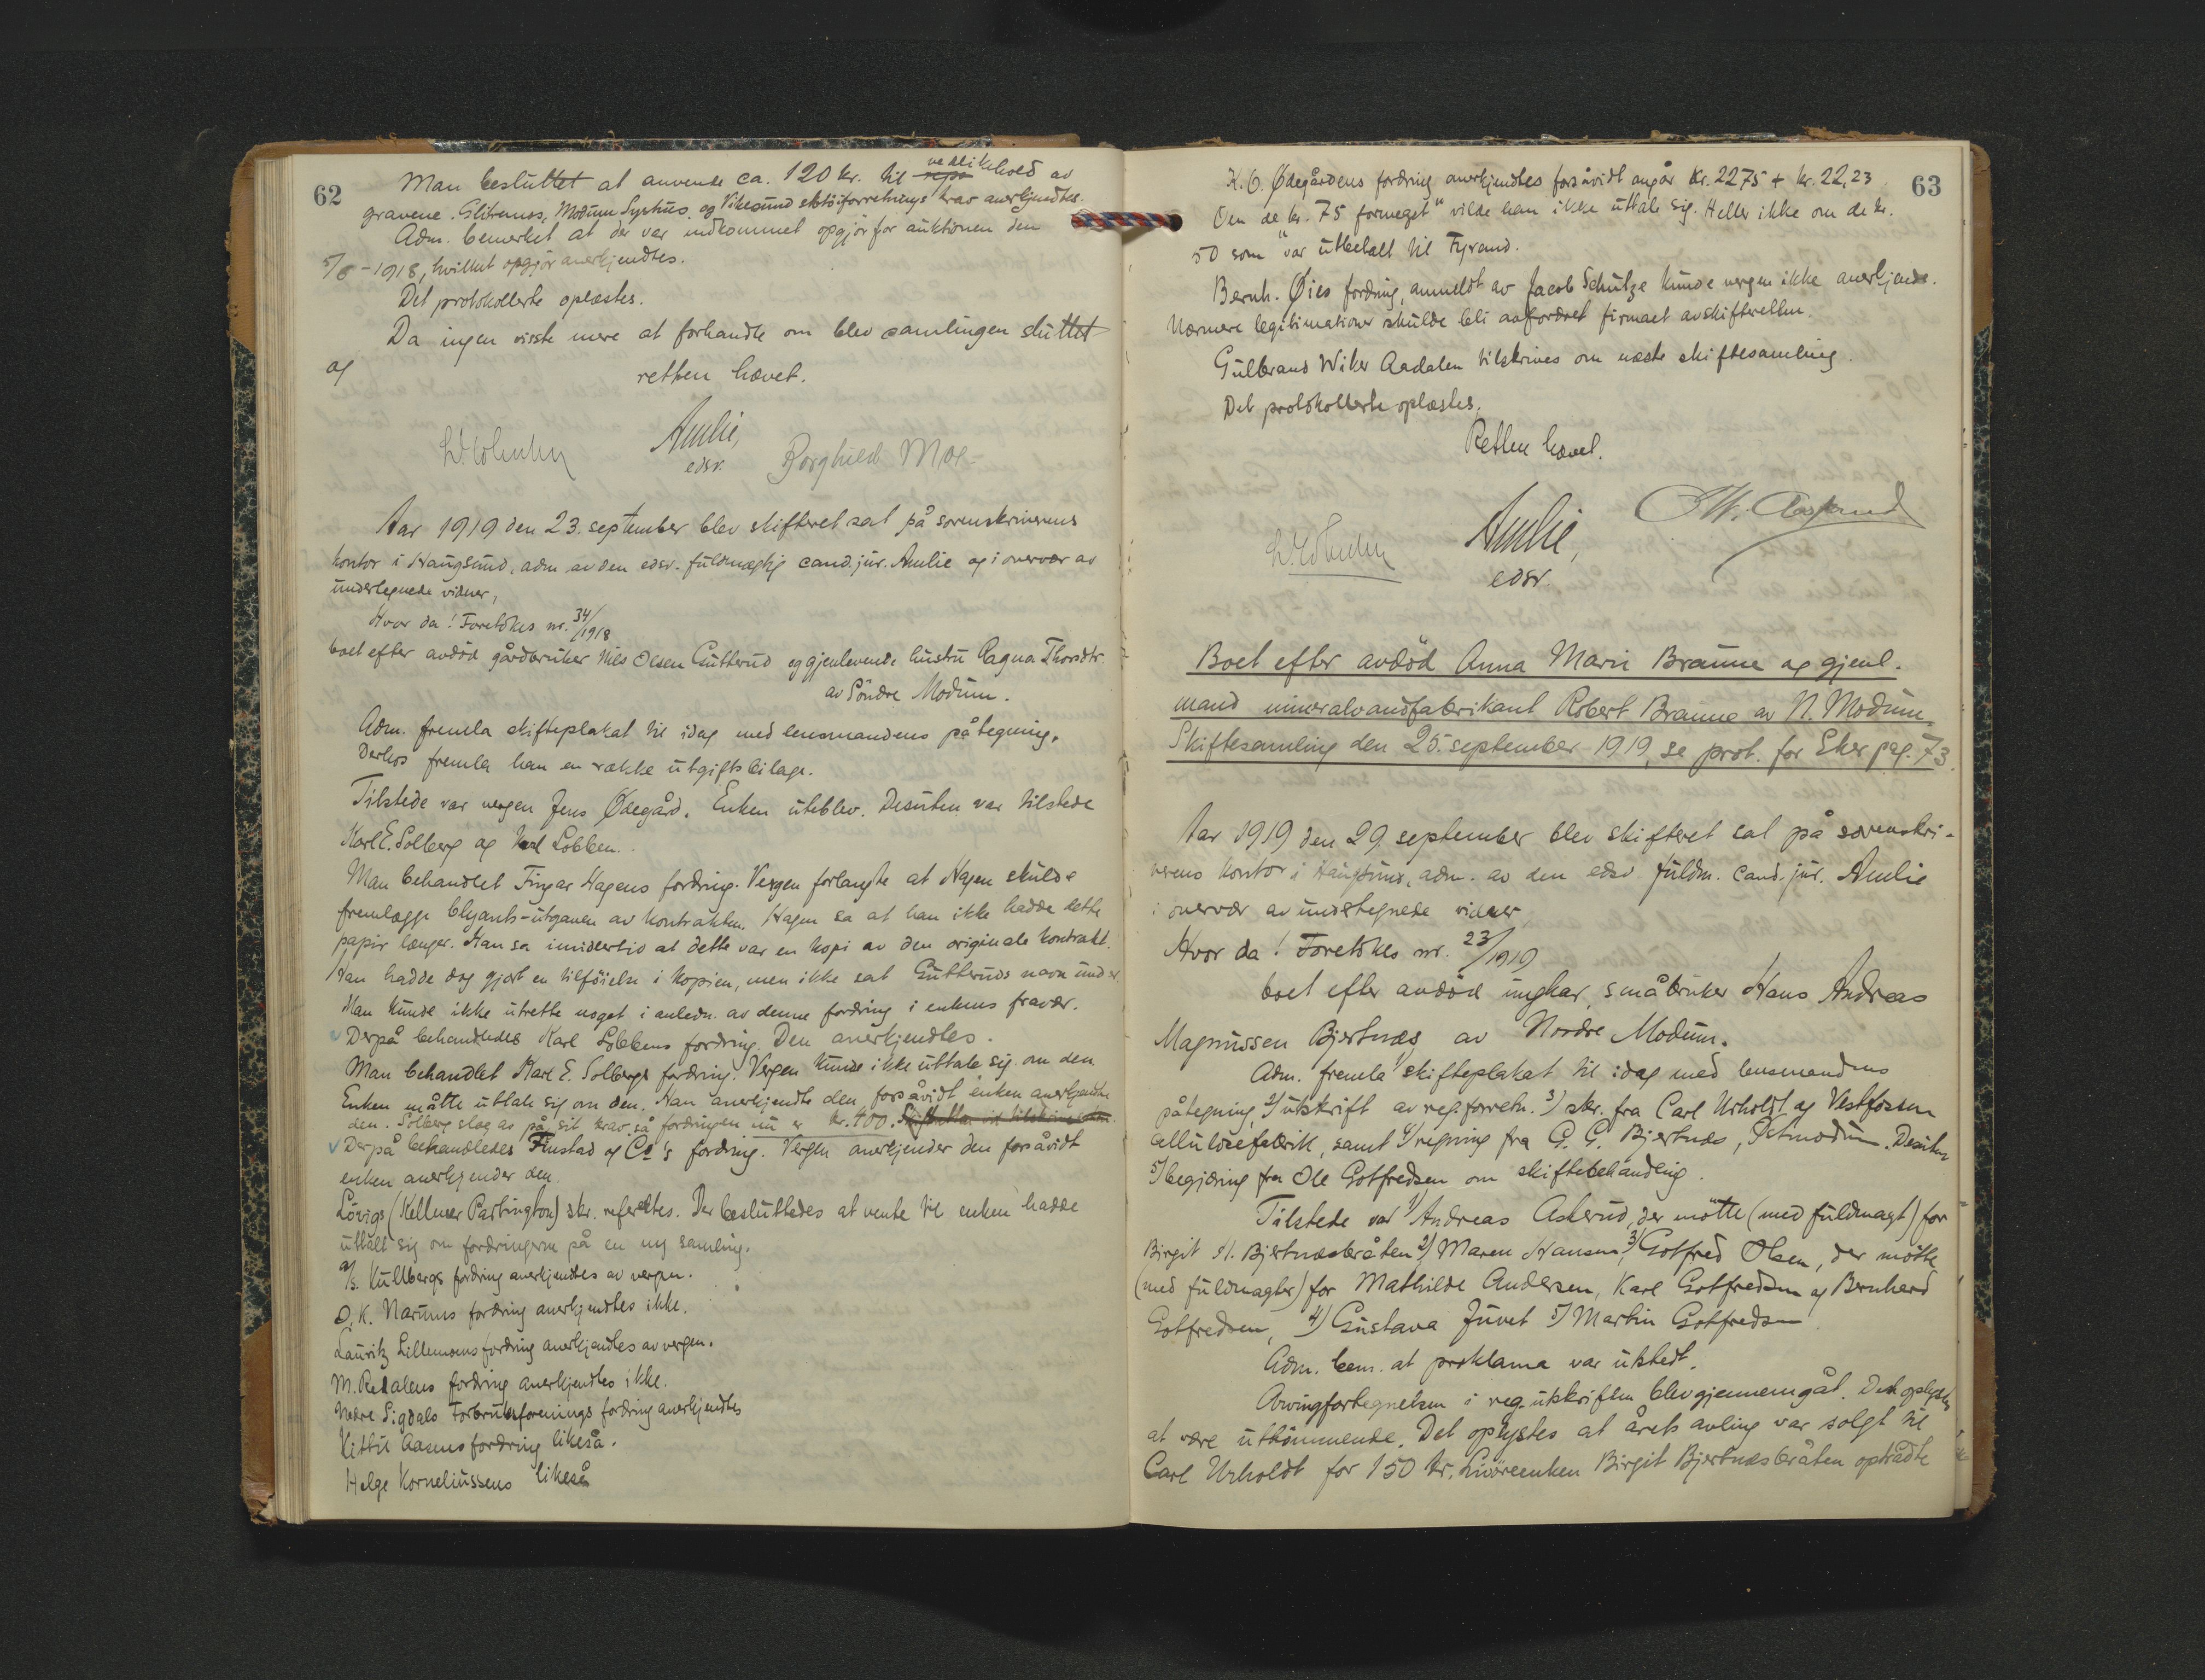 62
Man besluttet at anvende ca. 120 kr. til repa vedlikehold av
gravene. Glitrenos, Modum Systus. og Vikesund skotöiforretnings krav anerkjendtes.
Adm. bemerket at der var indkommet opgjör for auktionen den
5/6-1918, hvilket opgjör anerkjendtes.
Det protokollerte oplæstes.
Da ingen visste mere at forhandle om blev samlingen sluttet
og
retten hævet.
Amlie,
edsv.
Borghild Moe.
Aar 1919 den 23. september blev skifteret sat på sorenskriverens
kontor i Haugsund, adm. av den edsv. fuldmægtig cand. jur. Amlie og i overvær av
undertegnede vidner,
Hvor da! Foretokes nr. 34/1918
boet efter avdöd gårdbruker Nils Olsen Gutterud og gjenlevende hustru Ragna Thorsdtr.
av Söndre Modum.
Adm. fremla skifteplakat til idag med lensmandens påtegning.
Derhos fremla han en række utgiftsbilage.
Tilstede var vergen Jens Ødegård. Enken uteblev. Desuten var tilstede
Karl E. Solberg og Karl Lobben.
Man behandlet Fingar Hagens fordring. Vergen forlangte at Hagen skulde
fremlægge blyants-utgaven av kontrakten. Hagen sa at han ikke hadde dette
papir længer. Han sa imidlertid at dette var en kopi av den originale kontrakt.
Han hadde dog gjort en tilföielse i kopien, men ikke sat Gutteruds navn under.
Man kunde ikke utrette noget i anledn. av denne fordring i enkens fravær.
Derpå behandledes Karl Lobbens fordring. Den anerkjendtes.
Man behandlet Karl E. Solbergs fordring. Vergen kunde ikke uttale sig om den.
Enken måtte uttale sig om den. Han anerkjendte den, forsåvidt enken anerkjendte
den. Solberg slog av på sit krav så fordringen nu er kr. 400.
Derpå behandledes Finstad og Co's fordring. Vergen anerkjender den forsåvidt
enken anerkjender den.
Lövigs (Kellner Partington) skr. refereltes. Der besluttedes at vente til enken hadde
uttalt sig om fordringerne på en ny samling.
A/S. Kullbergs fordring anerkjendtes av vergen.
O. K. Narums fordring anerkjendtes ikke.
Lauritz Lillemoens fordring anerkjendtes av vergen.
M. Redalens fordring anerkjendtes ikke.
Nedre Sigdals Forbruksforenings fordring anerkjendtes
Kittil Aasens fordring likeså.
Helge Korneliussens likeså
63
K. O. Ødegårdens fordring anerkjendtes forsåvidt angår kr. 2275 + kr. 22,23
Om de kr. 75 "formeget" vilde han ikke uttale sig. Heller ikke om de kr.
50 som var utbetalt til Fyrand.
Bernh. Øies fordring, anmeldt av Jacob Schutze kunde vergen ikke anerkjende.
Nærmere legitimationer skulde bli avfordret firmaet av skifteretten.
Gulbrand Wiker Aadalen tilskrives om næste skiftesamling.
Det protokollerte oplæstes.
Retten hævet.
Amlie,
edsv.
Boet efter avdöd Anna Marie Braune og gjenl.
mand mineralvandfabrikant Robert Braune av N. Modum.
Skiftesamling den 25. september 1919, se prot. for Eker pag. 73.
Aar 1919 den 29 september blev skifteret sat på sorenskri-
verens kontor i Haugsund, adm. av den edsv. fuldm. cand. jur. Amlie
i overvær av undertegnede vidner,
Hvor da! Foretokes nr. 23/1919
boet efter avdöd ungkar, småbruker Hans Andreas
Magnussen Bjertnæs av Nordre Modum.
Adm. fremla 1) skifteplakat til idag med lensmandens
påtegning, 2) utskrift av reg.forretn. 3) skr. fra Carl Urholdt og Vestfossen
cellulosefabrik, samt 4) regning fra G. G. Bjertnæs, Østmodum. Desuten
5) begjæring fra Ole Gotfredsen om skiftebehandling.
Tilstede var 1) Andreas Askerud, der mötte (med fuldmagt) for
Birgit H. Bjertnæsbråten 2) Maren Hansen, 3) Gotfred Olsen, der mötte
(med fuldmagter) for Mathilde Andersen, Karl Gotfredsen og Bernhard
Gotfredsen, 4) Gustava Juvet 5) Martin Gotfredsen
Adm. bem. at proklama var utstedt.
Arvingfortegnelsen i reg.utskriften blev gjennemgåt. Den oplystes
at være uttömmende. Det oplystes at årets avling var solgt til
Carl Urholdt for 150 kr. Livöreenken Birgit Bjertnæsbråten optrådte